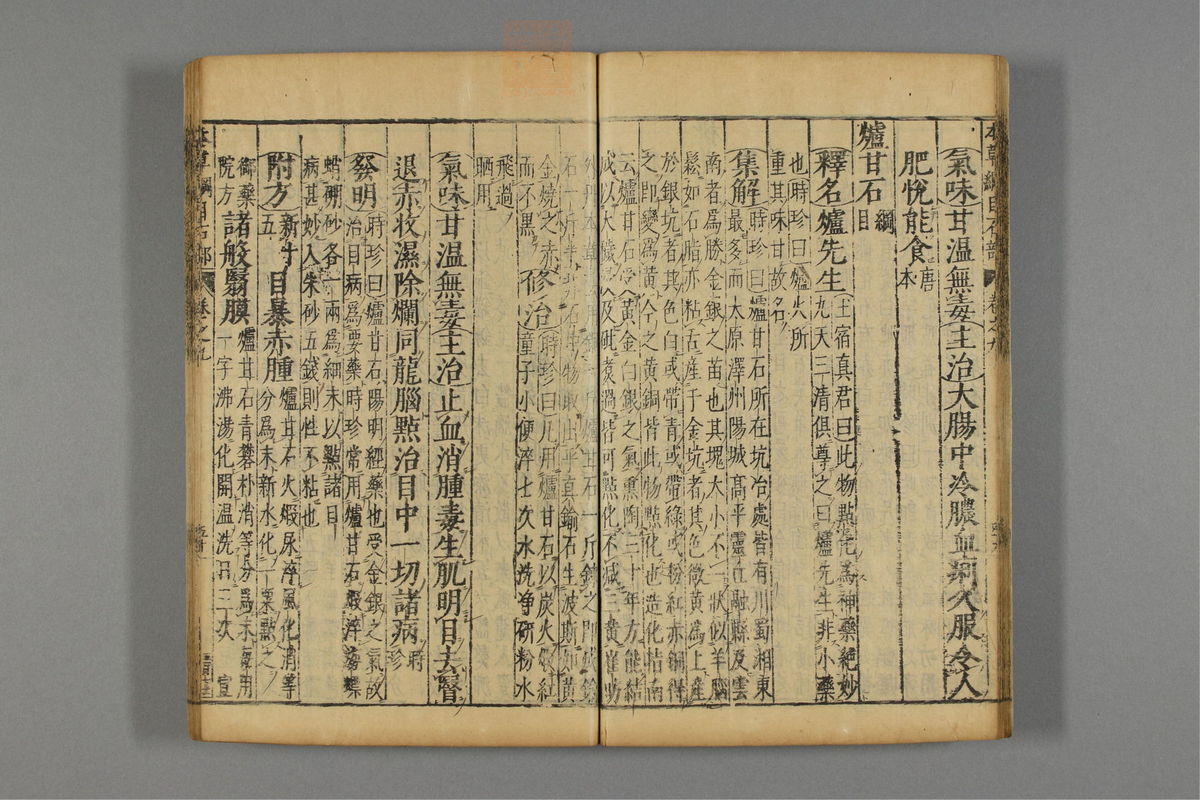 氣味甘溫無毒主治大腸中冷膿血痢久服令人
肥悅能食唐本
爐甘石綱目
釋名爐先生土宿真君曰此物點化為神藥絕妙
九天三清俱尊之曰爐先生非小藥
也時珍曰爐火所
重其味甘故名
集解時珍曰爐甘石所在坑冶處皆有川蜀湘東
最多而太原澤州陽城高平靈丘融縣及雲
南者為勝金銀之苗也其塊大小不一狀似羊腦
鬆如石脂亦粘舌產于金坑者其色微黃為上產
於銀坑者其色白或帶青或帶綠或粉紅赤銅得
之即變為黃今之黃銅皆此物點化也造化指南
云爐甘石受黃金白銀之氣熏陶三十年方能結
成以大穢浸及砒煮過皆可點化不減三黃崔昉
外丹本草
金燒之赤
而不黑
修治時珍曰凡用爐甘石以炭火煅紅
童子小便淬七次水洗净研粉水
飛過
晒用
氣味甘溫無毒主治止血消腫毒生肌明目去瞖
退赤收濕除爛同龍腦點治目中一切諸病時珍
發明時珍曰爐甘石陽明經藥也受金銀之氣故
治目病為要藥時珍常用爐甘石煅淬海螵
蛸硼砂各一兩為細末以點諸目
病甚妙入朱砂五錢則性不粘也
附方新十五目暴赤腫爐甘石火煅尿淬風化消等
分為末新水化一粟點之
御藥院方諸般翳膜爐甘石青礬朴消等分為末每用
一字沸湯化開溫洗日三次宣
本草綱目石部
卷之九